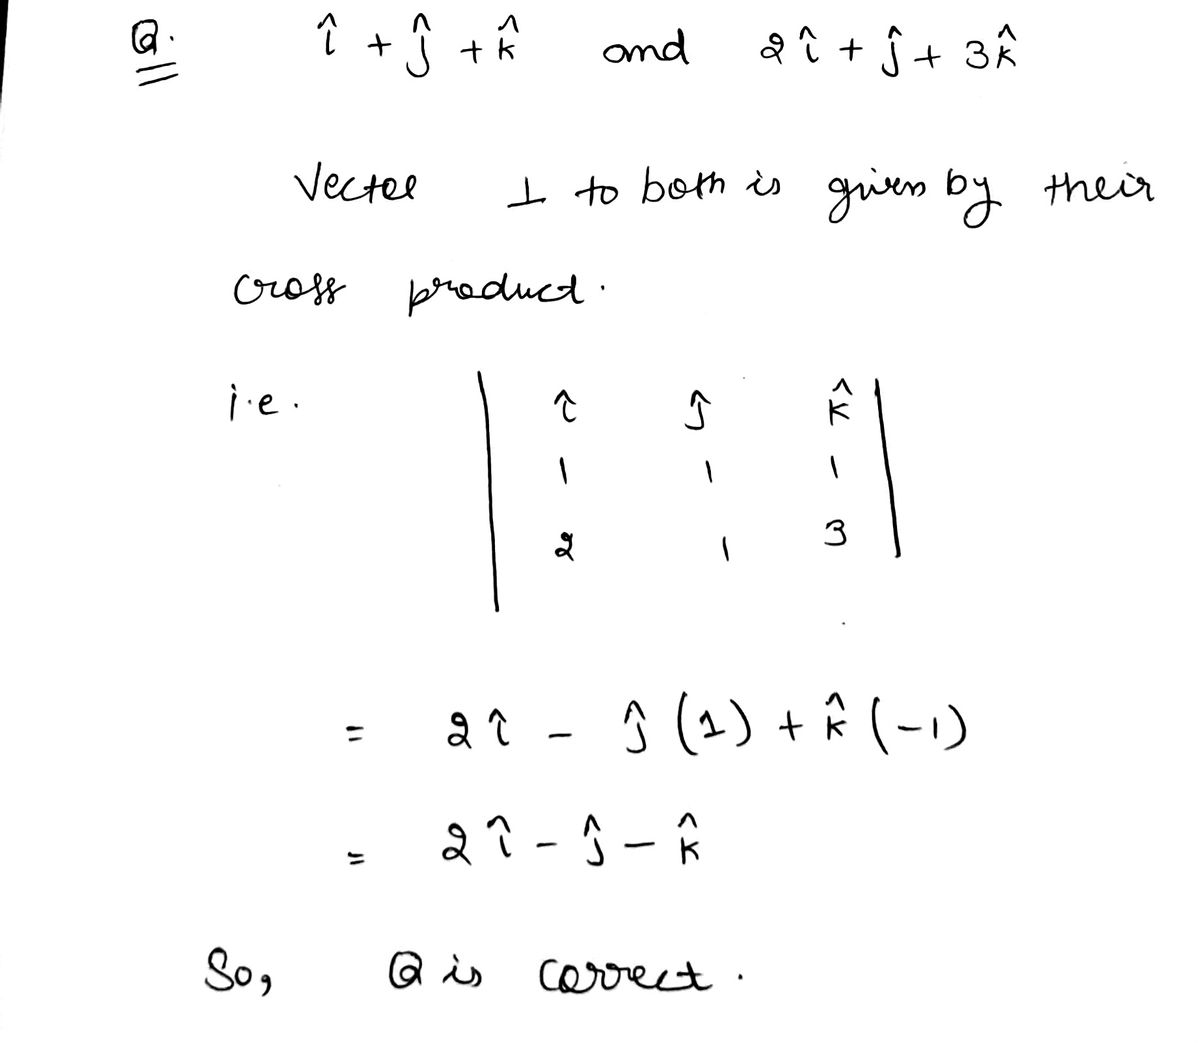 Q. î + ĵ + k̂ and 2î + ĵ + 3k̂
Vector ⊥ to both is given by their
cross product.
i.e. | î ĵ k̂ |
| 1 1 1 |
| 2 1 3 |
= 2î - ĵ (1) + k̂ (-1)
= 2î - ĵ - k̂
So, Q is correct.